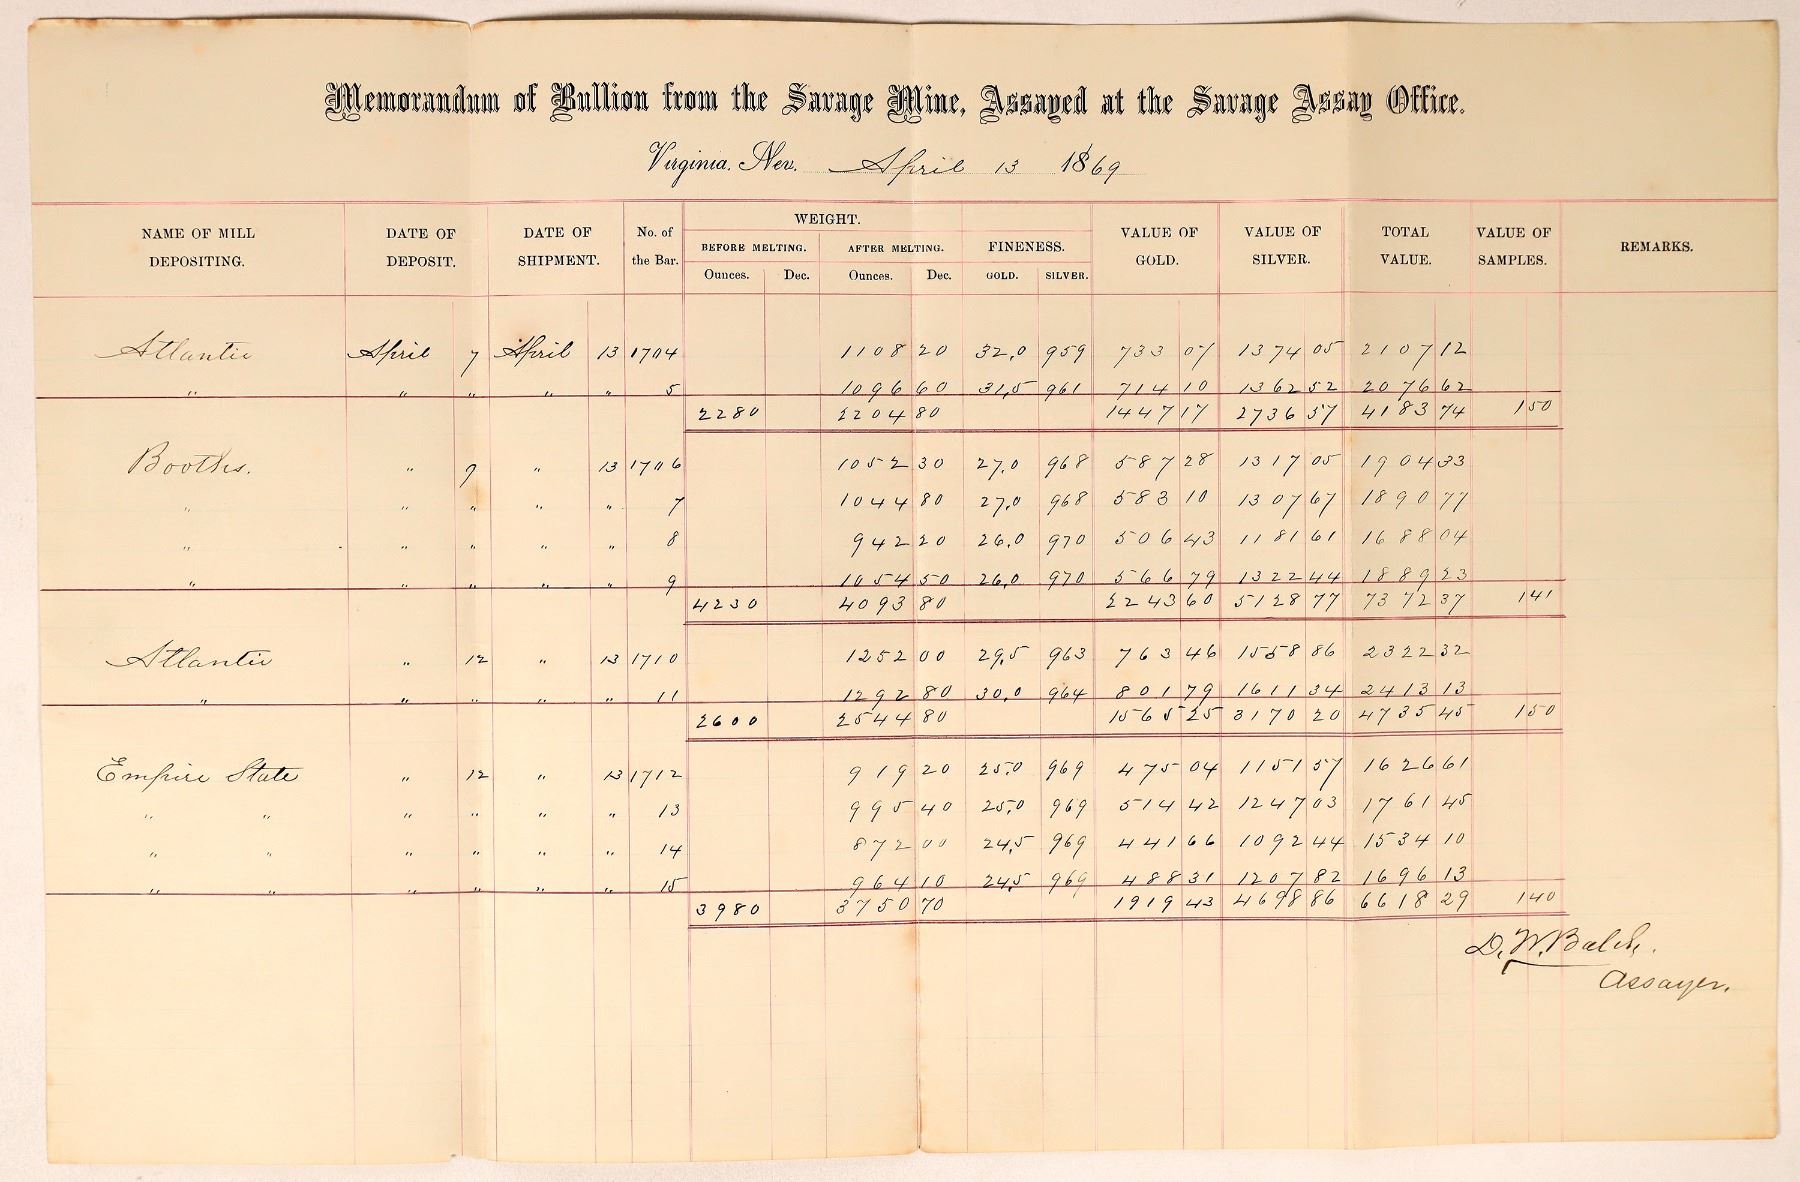 Memorandum of Bullion from the Savage Mine, Assayed at the Savage Assay Office.
Virginia. Nev. April 13 1869
NAME OF MILL DEPOSITING. DATE OF DEPOSIT. DATE OF SHIPMENT. No. of the Bar. WEIGHT. BEFORE MELTING. Ounces. Dec. AFTER MELTING. Ounces. Dec. FINENESS. GOLD. SILVER. VALUE OF GOLD. VALUE OF SILVER. TOTAL VALUE. VALUE OF SAMPLES. REMARKS.
Atlantic April 7 April 13 1704 1108 20 32.0 959 733 07 1374 05 2107 12
" " " " " 5 1096 60 31.5 961 714 10 1362 52 2076 62
2280 2204 80 1447 17 2736 57 4183 74 150
Booths. " 9 " 13 1706 1052 30 27.0 968 587 28 1317 05 1904 33
" " " " " 7 1044 80 27.0 968 583 10 1307 67 1890 77
" " " " " 8 942 20 26.0 970 506 43 1181 61 1688 04
" " " " " 9 1054 50 26.0 970 566 79 1322 44 1889 23
4230 4093 80 2243 60 5128 77 7372 37 141
Atlantic " 12 " 13 1710 1252 00 29.5 963 763 46 1558 86 2322 32
" " " " " 11 1292 80 30.0 964 801 79 1611 34 2413 13
2600 2544 80 1565 25 3170 20 4735 45 150
Empire State " 12 " 13 1712 919 20 25.0 969 475 04 1151 57 1626 61
" " " " " " 13 995 40 25.0 969 514 42 1247 03 1761 45
" " " " " " 14 872 00 24.5 969 441 66 1092 44 1534 10
" " " " " " 15 964 10 24.5 969 488 31 1207 82 1696 13
3980 3750 70 1919 43 4698 86 6618 29 140
D. W. Balch,
Assayer.